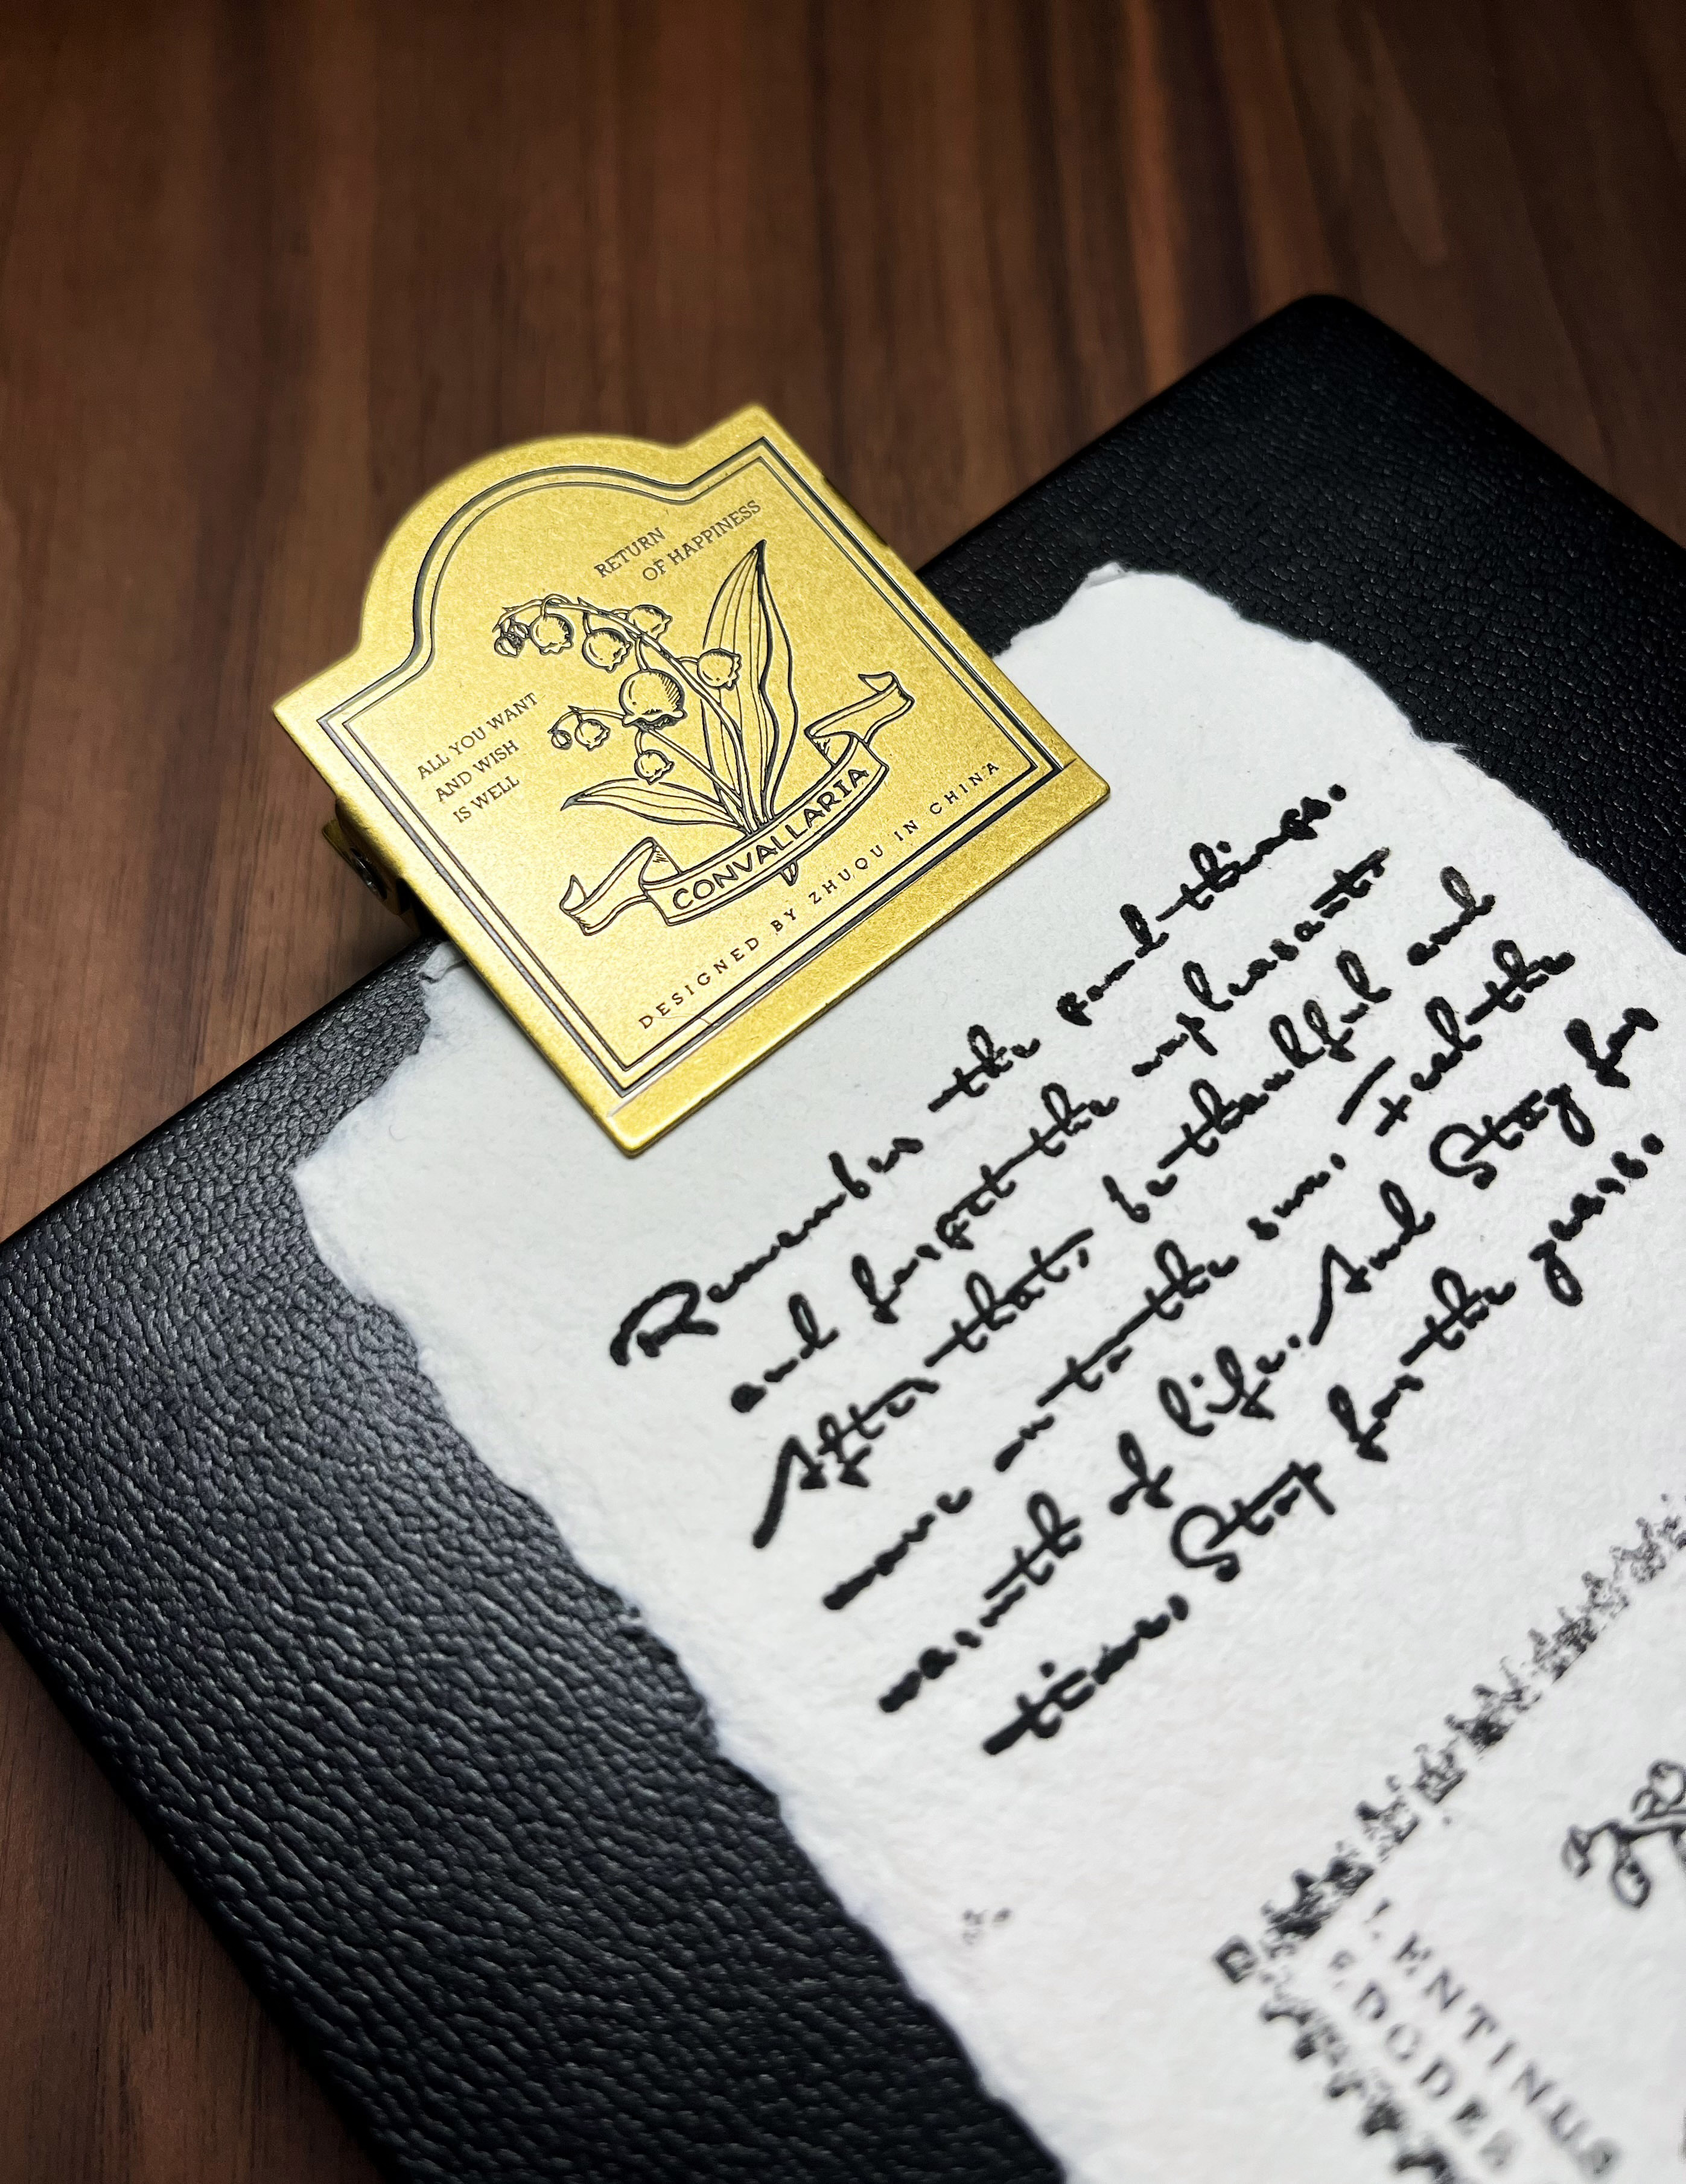 RETURN
OF HAPPINESS
ALL YOU WANT
AND WISH
IS WELL
CONVALLARIA
DESIGNED BY ZHUQU IN CHINA
Remember the good things.
and forget the unpleasant,
After that, be thankful and
move on to the sun. Feel the
warmth of life. And Stay for
time, Stop for the years.
ENTINUS
EDODES